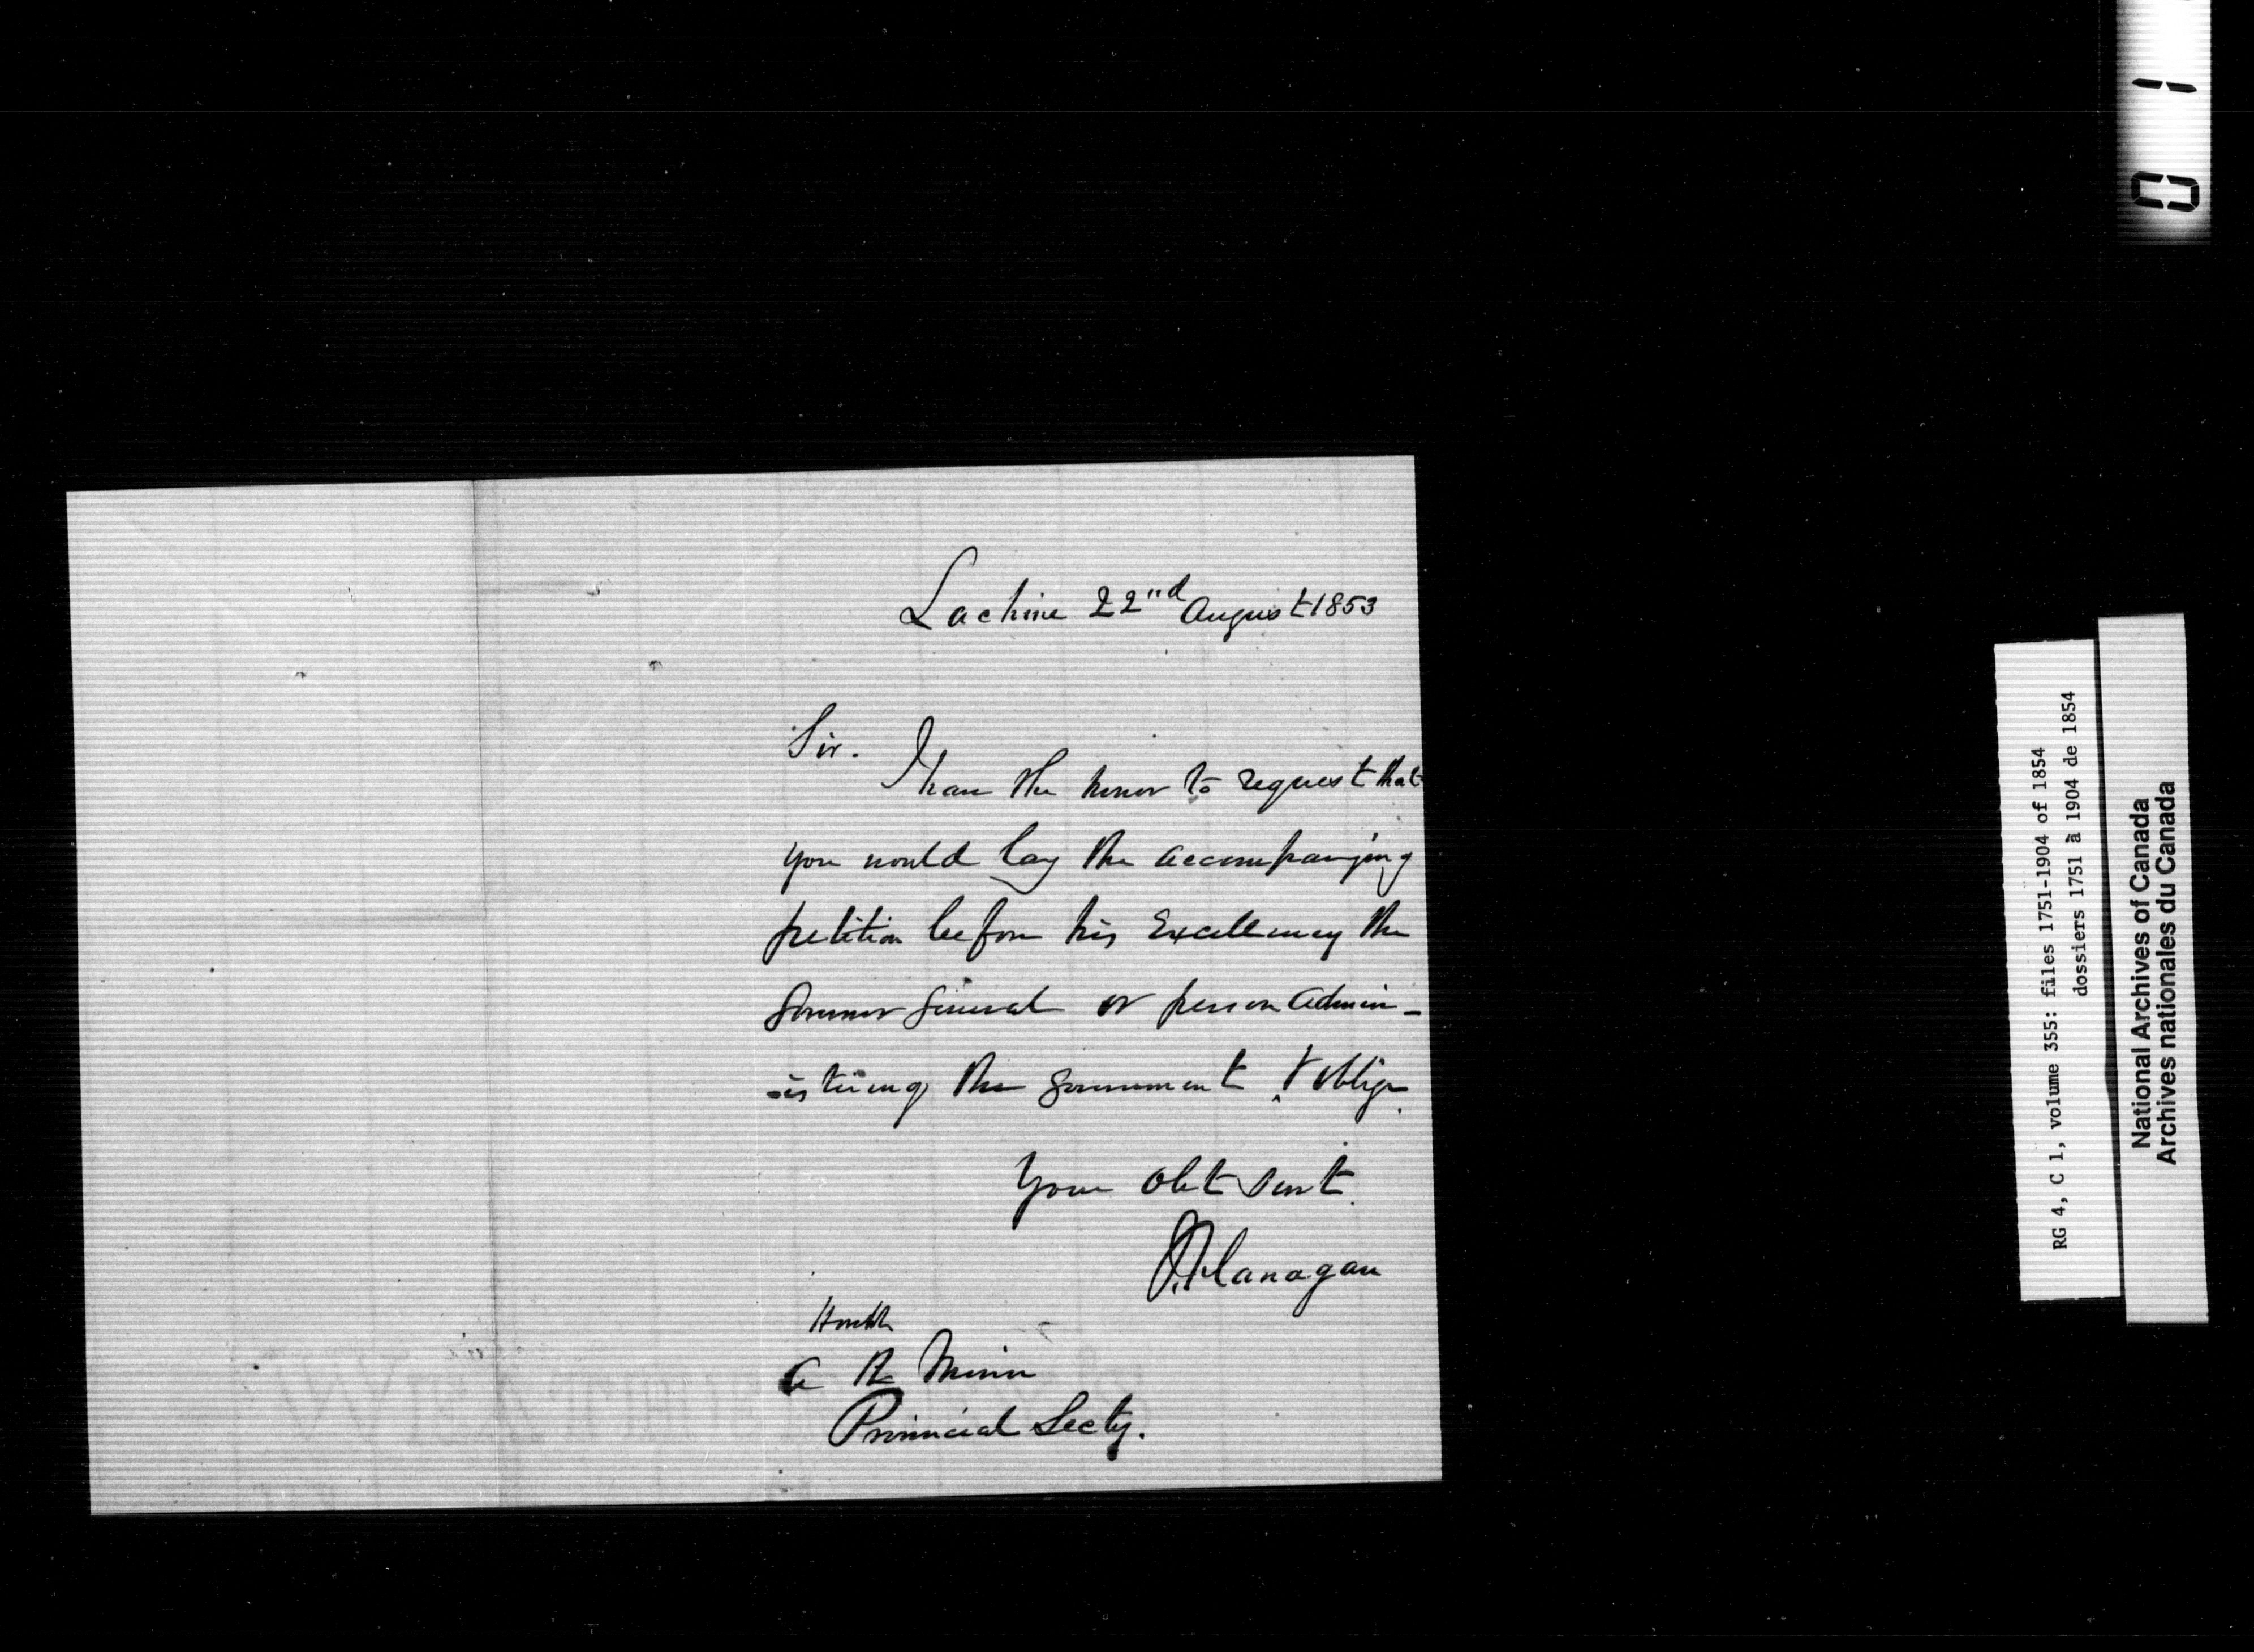 Lachine 22nd August 1853
Sir.
I have the honor to request that
you would lay the accompanying
petition before his Excellency the
Governor General or person admin-
-istering the government & oblige.
Your obt servt.
J. Flanagan
Honble
A N Morin
Provincial Secty.
01
RG 4, C 1, volume 355: files 1751-1904 of 1854
dossiers 1751 à 1904 de 1854
National Archives of Canada
Archives nationales du Canada